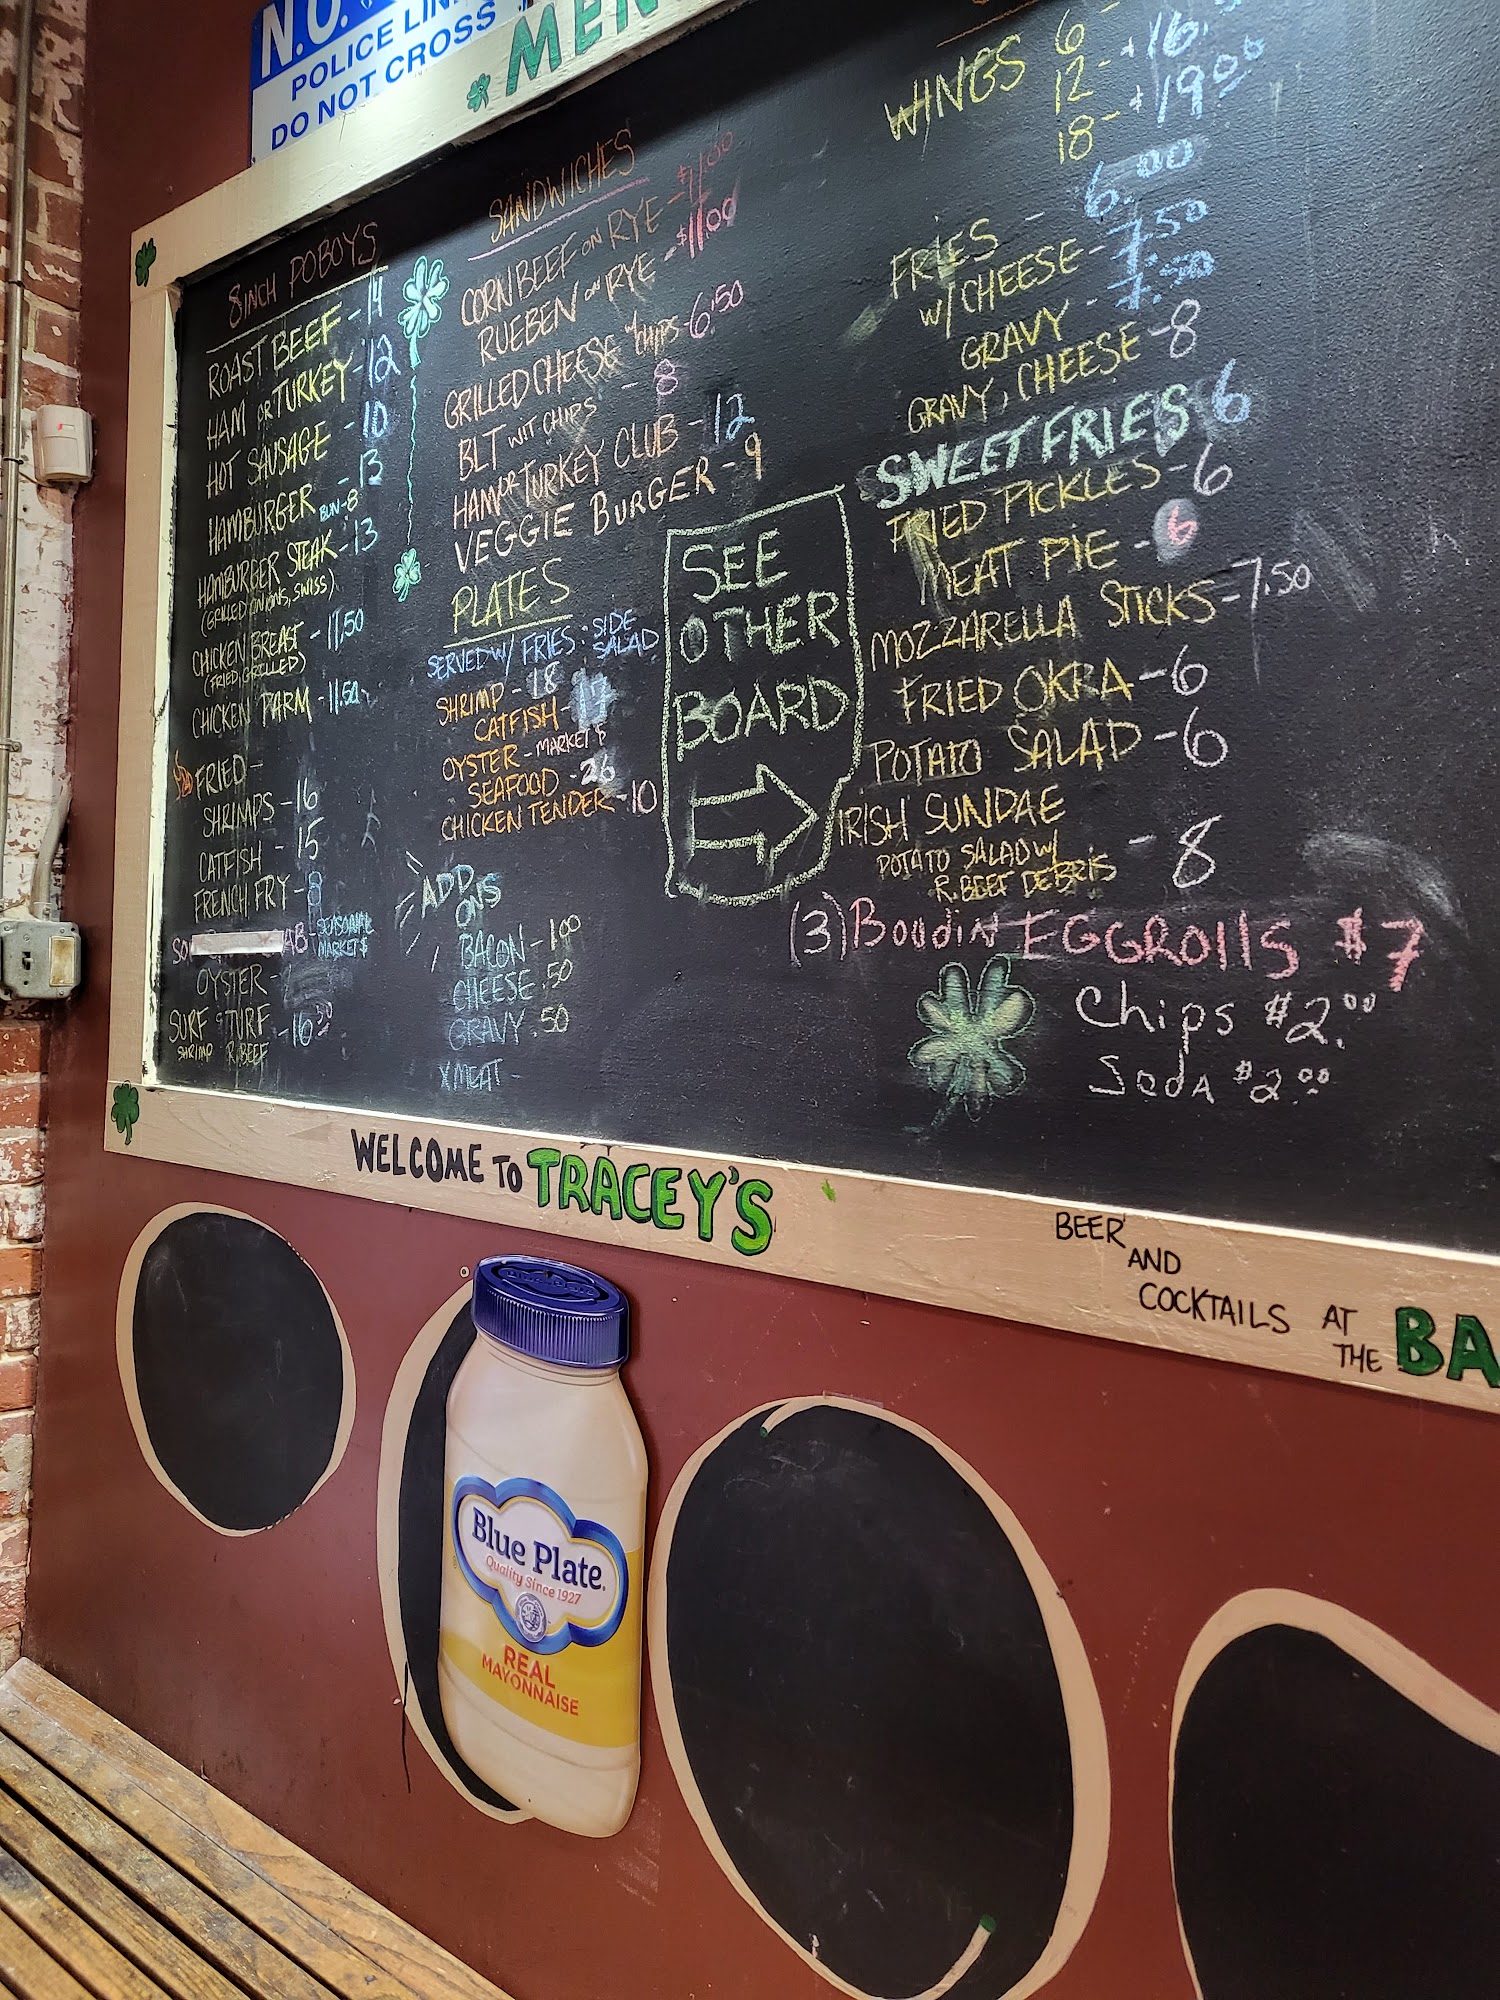 N.O.
POLICE LIN
DO NOT CROSS
MEN
8 INCH POBOYS
ROAST BEEF - 14
HAM OR TURKEY - 12
HOT SAUSAGE - 10
HAMBURGER - 13
BUN - 8
HAMBURGER STEAK - 13
(GRILLED ONIONS, SWISS)
CHICKEN BREAST - 11.50
(FRIED, GRILLED)
CHICKEN PARM - 11.50
FRIED -
SHRIMPS - 16
CATFISH - 15
FRENCH FRY - 8
SO AB - SEASONAL
MARKET $
OYSTER -
SURF & TURF - 16.50
SHRIMP R. BEEF
SANDWICHES
CORN BEEF ON RYE - $11.00
RUEBEN ON RYE - $11.00
GRILLED CHEESE W/CHIPS - 6.50
BLT WIT CHIPS - 8
HAM OR TURKEY CLUB - 12
VEGGIE BURGER - 9
PLATES
SERVED W/ FRIES & SIDE
SALAD
SHRIMP - 18
CATFISH - 17
OYSTER - MARKET $
SEAFOOD - 26
CHICKEN TENDER - 10
ADD
ONS
BACON - 1.00
CHEESE .50
GRAVY .50
X MEAT -
SEE
OTHER
BOARD
WINGS 6 -
12 - $16.
18 - $19.00
FRIES - 6.00
W/CHEESE - 7.50
GRAVY - 7.50
GRAVY, CHEESE - 8
SWEET FRIES 6
FRIED PICKLES - 6
MEAT PIE - 6
MOZZARELLA STICKS - 7.50
FRIED OKRA - 6
POTATO SALAD - 6
IRISH SUNDAE
POTATO SALAD W/ - 8
R. BEEF DEBRIS
(3) Boudin EGGROllS $7
Chips $2.00
SodA $2.00
WELCOME TO TRACEY'S
BEER AND
COCKTAILS AT
THE BA
Blue Plate
Quality Since 1927
REAL
MAYONNAISE